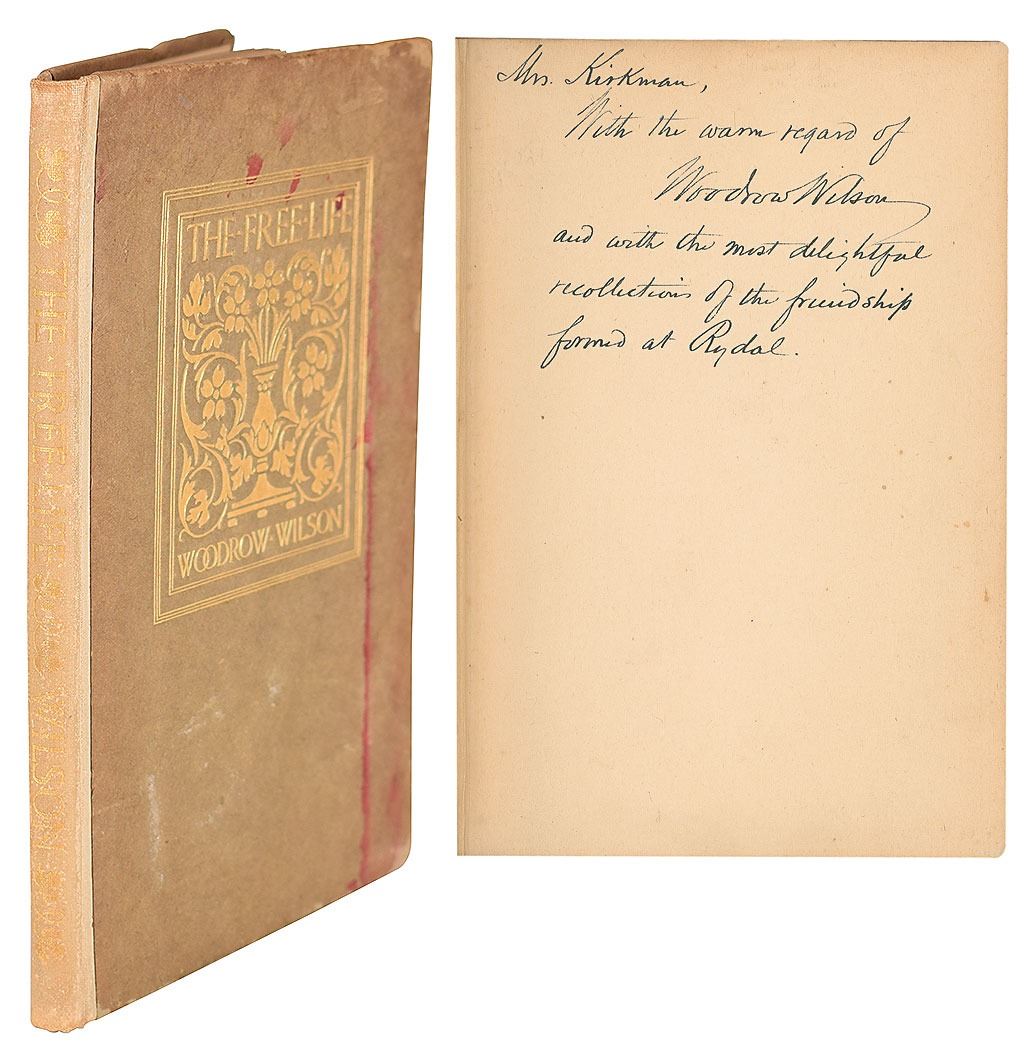 THE·FREE·LIFE
WOODROW·WILSON
THE·FREE·LIFE
WILSON
Mrs. Kirkman,
With the warm regard of
Woodrow Wilson
and with the most delightful
recollections of the friendship
formed at Rydal.